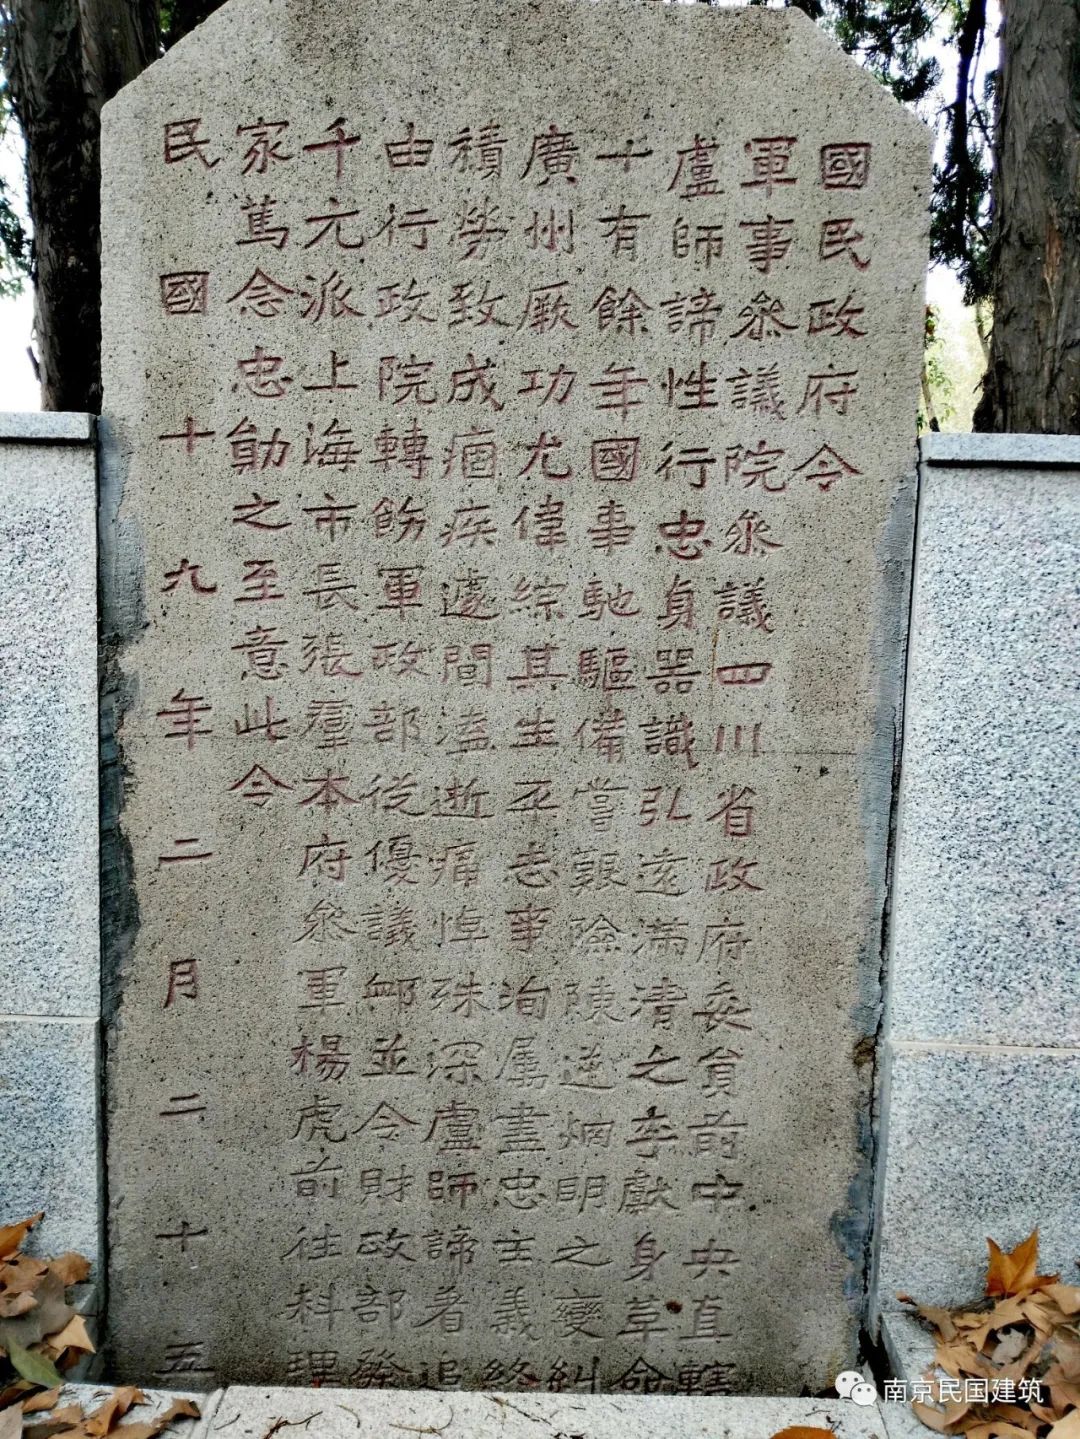 國民政府令
軍事參議院參議四川省政府委員前中央直轄
盧師諦性行忠貞器識弘遠滿清之季獻身革命
十有餘年國事馳驅備嘗艱險陳逆炯明之變糾
廣州厥功尤偉綜其生平志事洵屬盡忠主義終
積勞致成痼疾遽聞溘逝痛悼殊深盧師諦著追
由行政院轉飭軍政部從優議卹並令財政部發
千元派上海市長張羣本府參軍楊虎前往料理
家篤念忠勛之至意此令
民國十九年二月二十五
南京民国建筑